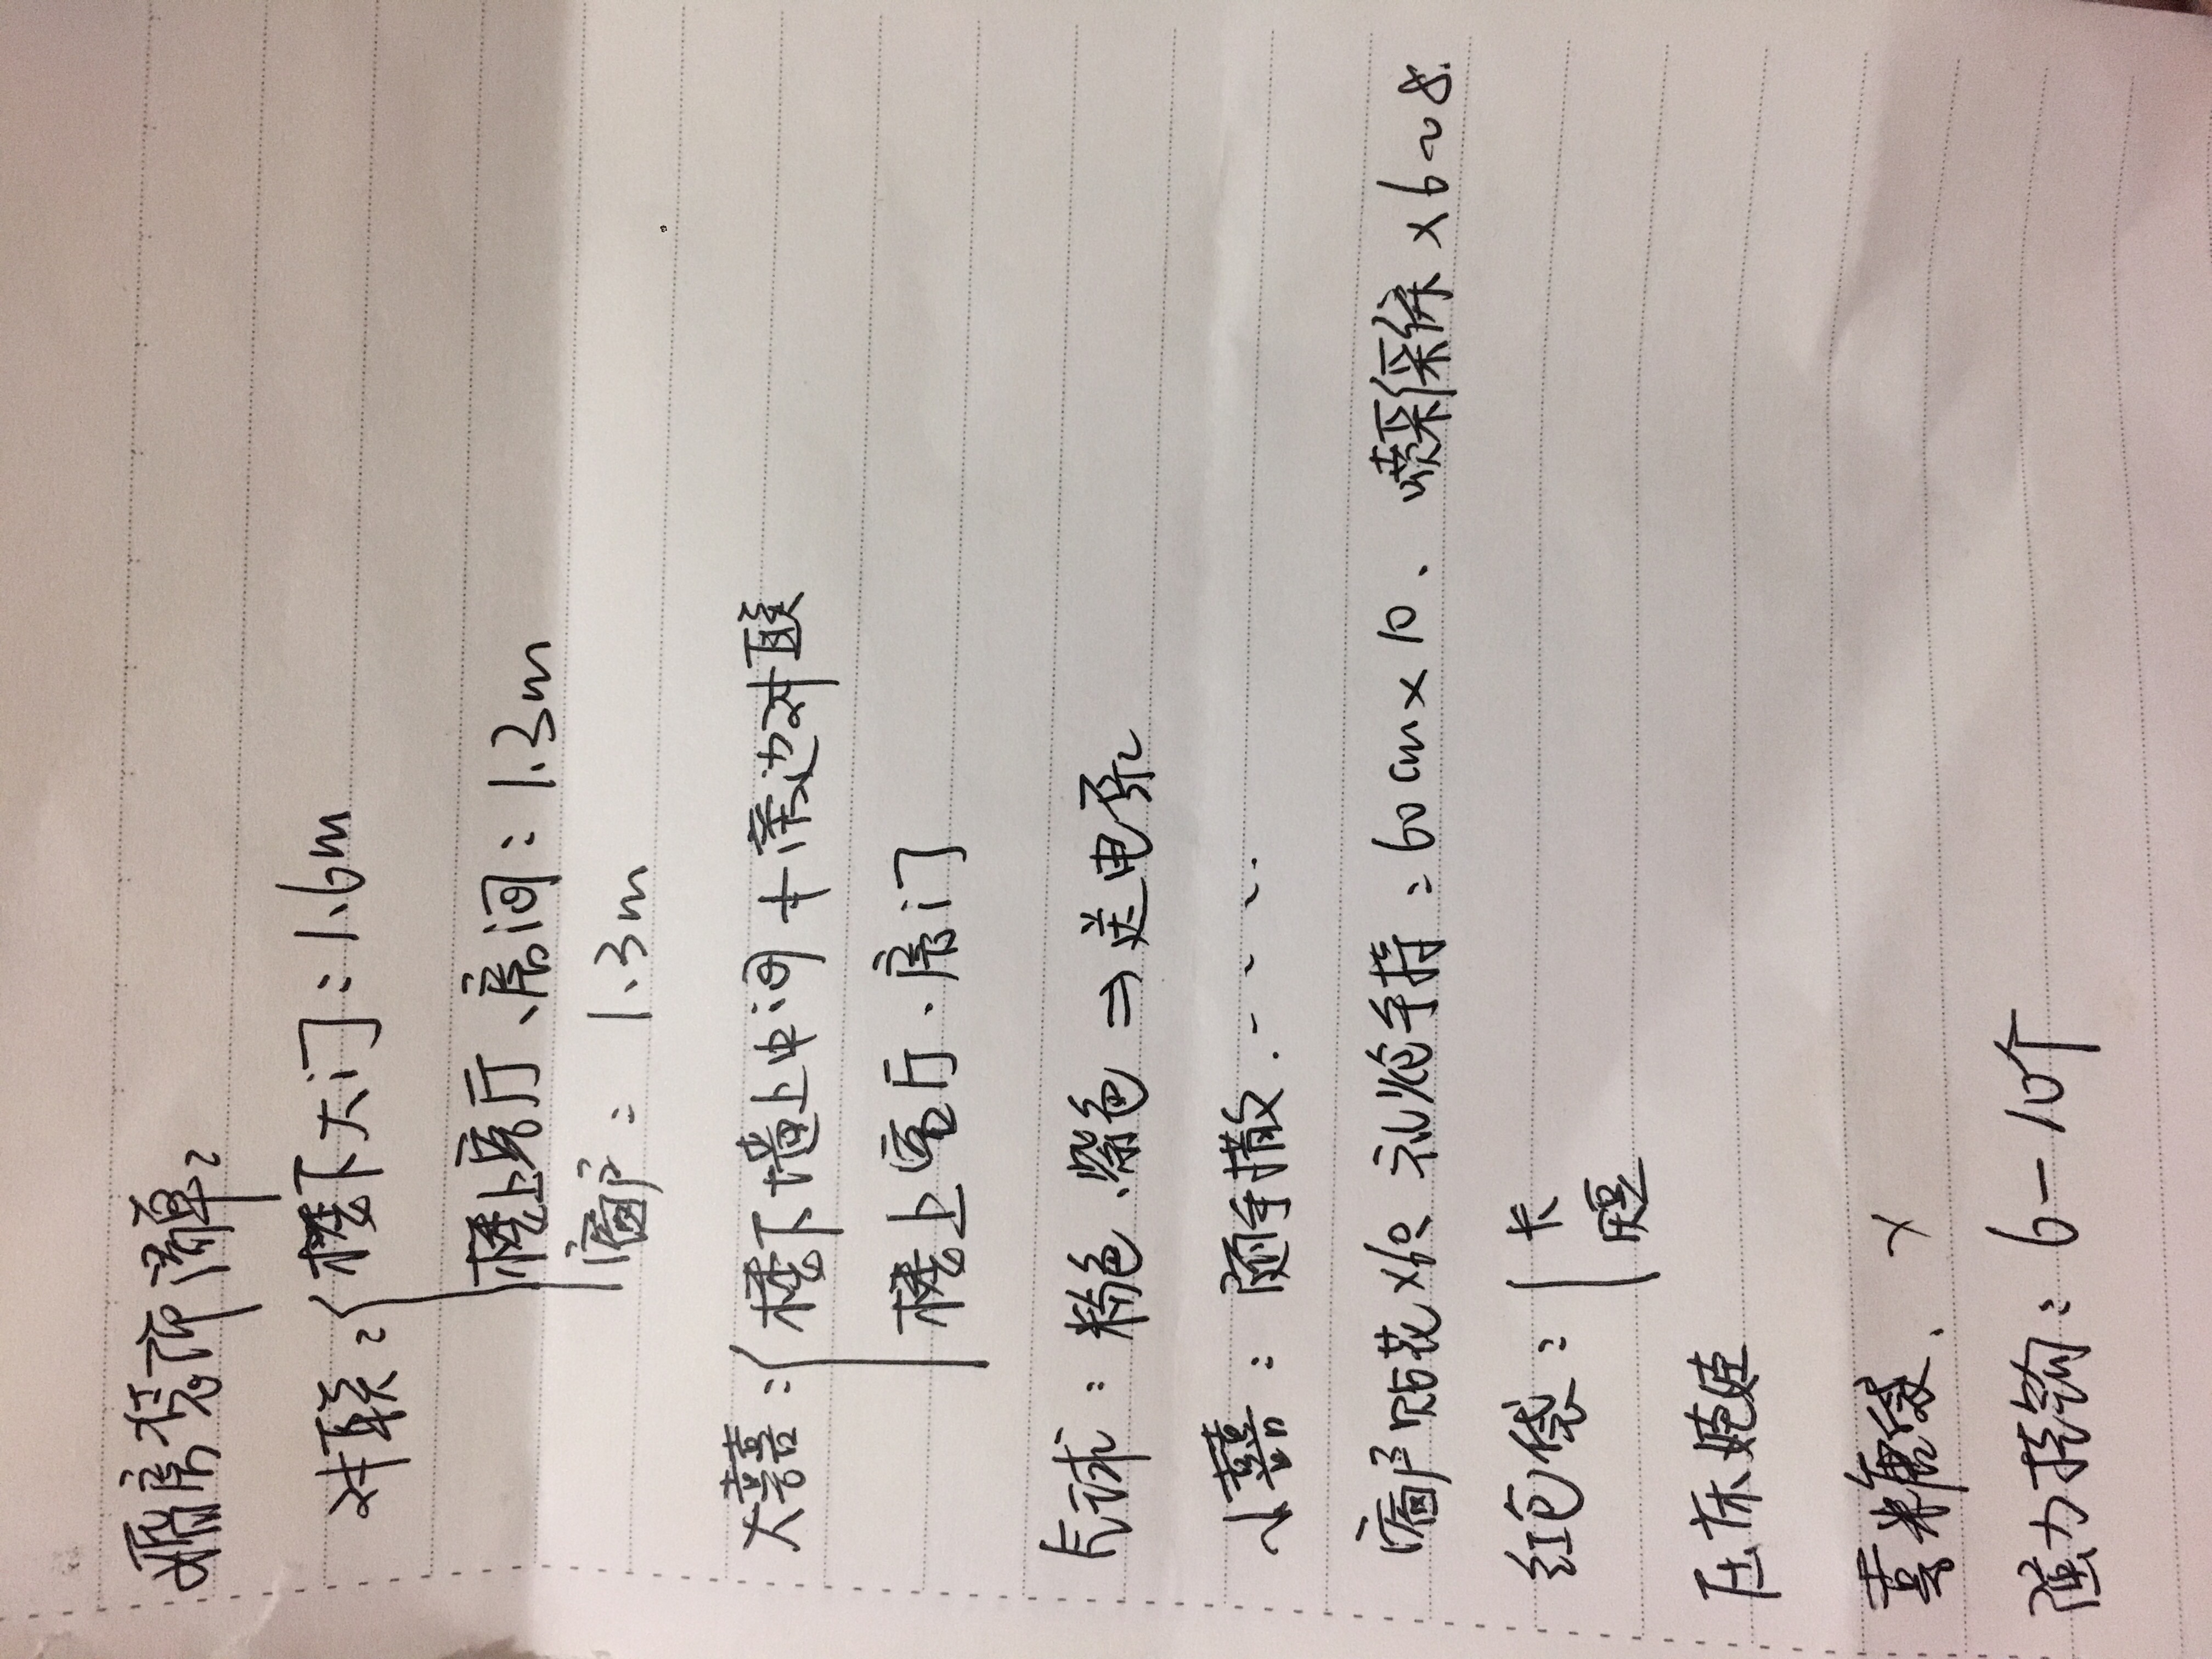 婚房装饰清单:
对联:{楼下大门:1.6m
楼上客厅、房间:1.3m
窗户:1.3m
大囍:{楼下墙上中间+旁边对联
楼上客厅、房门
气球:粉色、紫色⇒送电泵
小囍:随手撒......
窗户贴花 对烛 礼炮手持:60cm×10、喷彩条×6~8.
红包袋:{卡
短
压床娃娃
喜糖袋、×
强力挠钩:6-10个